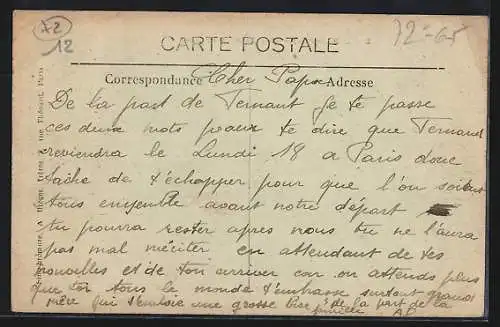 72
12
72-65
CARTE POSTALE
Correspondance Cher Papa Adresse
De la part de Fernant Je te passe
ces deux mots peaux te dire que Fernand
reviendra le Lundi 18 a Paris donc
tache de t'échapper pour que l'on soit
tous ensemble avant notre départ
tu pourra rester apres nous tu ne l'aura
pas mal mériter en attendant de tes
nouvelles et de ton arriver car on attends plus
que toi tous le monde t'embrasse surtout grand
mère qui t'envoie une grosse bise de la part de la
famille AD